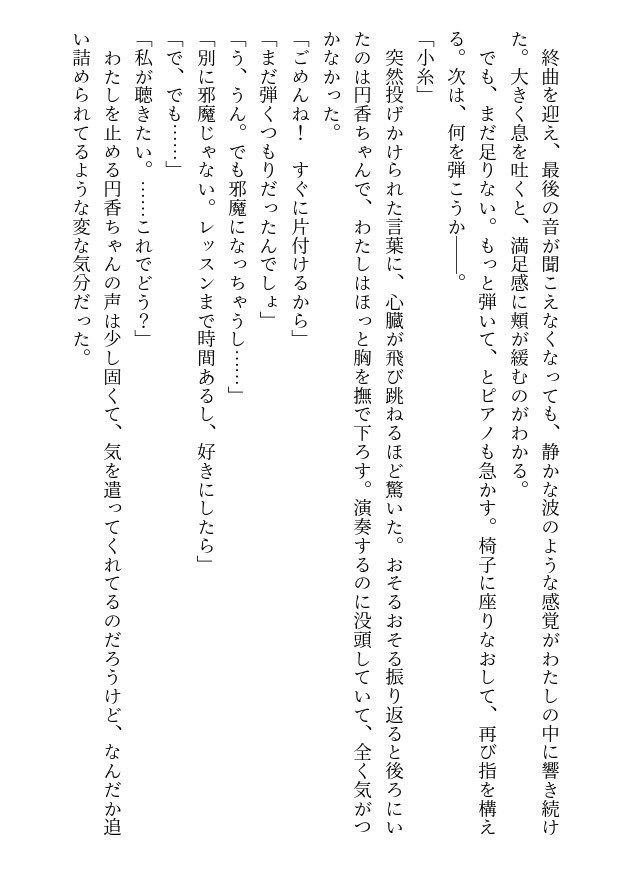 終曲を迎え、最後の音が聞こえなくなっても、静かな波のような感覚がわたしの中に響き続け
た。大きく息を吐くと、満足感に頬が緩むのがわかる。
　でも、まだ足りない。もっと弾いて、とピアノも急かす。椅子に座りなおして、再び指を構え
る。次は、何を弾こうか――。
「小糸」
　突然投げかけられた言葉に、心臓が飛び跳ねるほど驚いた。おそるおそる振り返ると後ろにい
たのは円香ちゃんで、わたしはほっと胸を撫で下ろす。演奏するのに没頭していて、全く気がつ
かなかった。
「ごめんね！　すぐに片付けるから」
「まだ弾くつもりだったんでしょ」
「う、うん。でも邪魔になっちゃうし……」
「別に邪魔じゃない。レッスンまで時間あるし、好きにしたら」
「で、でも……」
「私が聴きたい。……これでどう？」
　わたしを止める円香ちゃんの声は少し固くて、気を遣ってくれてるのだろうけど、なんだか追
い詰められてるような変な気分だった。